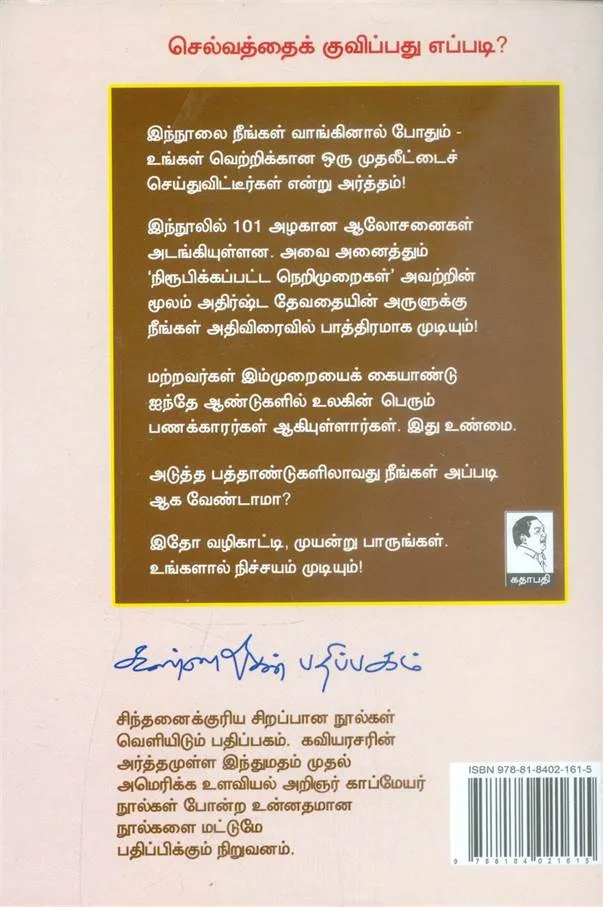 செல்வத்தைக் குவிப்பது எப்படி?
இந்நூலை நீங்கள் வாங்கினால் போதும் -
உங்கள் வெற்றிக்கான ஒரு முதலீட்டைச்
செய்துவிட்டீர்கள் என்று அர்த்தம்!
இந்நூலில் 101 அழகான ஆலோசனைகள்
அடங்கியுள்ளன. அவை அனைத்தும்
'நிரூபிக்கப்பட்ட நெறிமுறைகள்' அவற்றின்
மூலம் அதிர்ஷ்ட தேவதையின் அருளுக்கு
நீங்கள் அதிவிரைவில் பாத்திரமாக முடியும்!
மற்றவர்கள் இம்முறையைக் கையாண்டு
ஐந்தே ஆண்டுகளில் உலகின் பெரும்
பணக்காரர்கள் ஆகியுள்ளார்கள். இது உண்மை.
அடுத்த பத்தாண்டுகளிலாவது நீங்கள் அப்படி
ஆக வேண்டாமா?
இதோ வழிகாட்டி, முயன்று பாருங்கள்.
உங்களால் நிச்சயம் முடியும்!
கதாபதி
கண்ணதாசன் பதிப்பகம்
சிந்தனைக்குரிய சிறப்பான நூல்கள்
வெளியிடும் பதிப்பகம். கவியரசரின்
அர்த்தமுள்ள இந்துமதம் முதல்
அமெரிக்க உளவியல் அறிஞர் காப்மேயர்
நூல்கள் போன்ற உன்னதமான
நூல்களை மட்டுமே
பதிப்பிக்கும் நிறுவனம்.
ISBN 978-81-8402-161-5
9 788184 021615